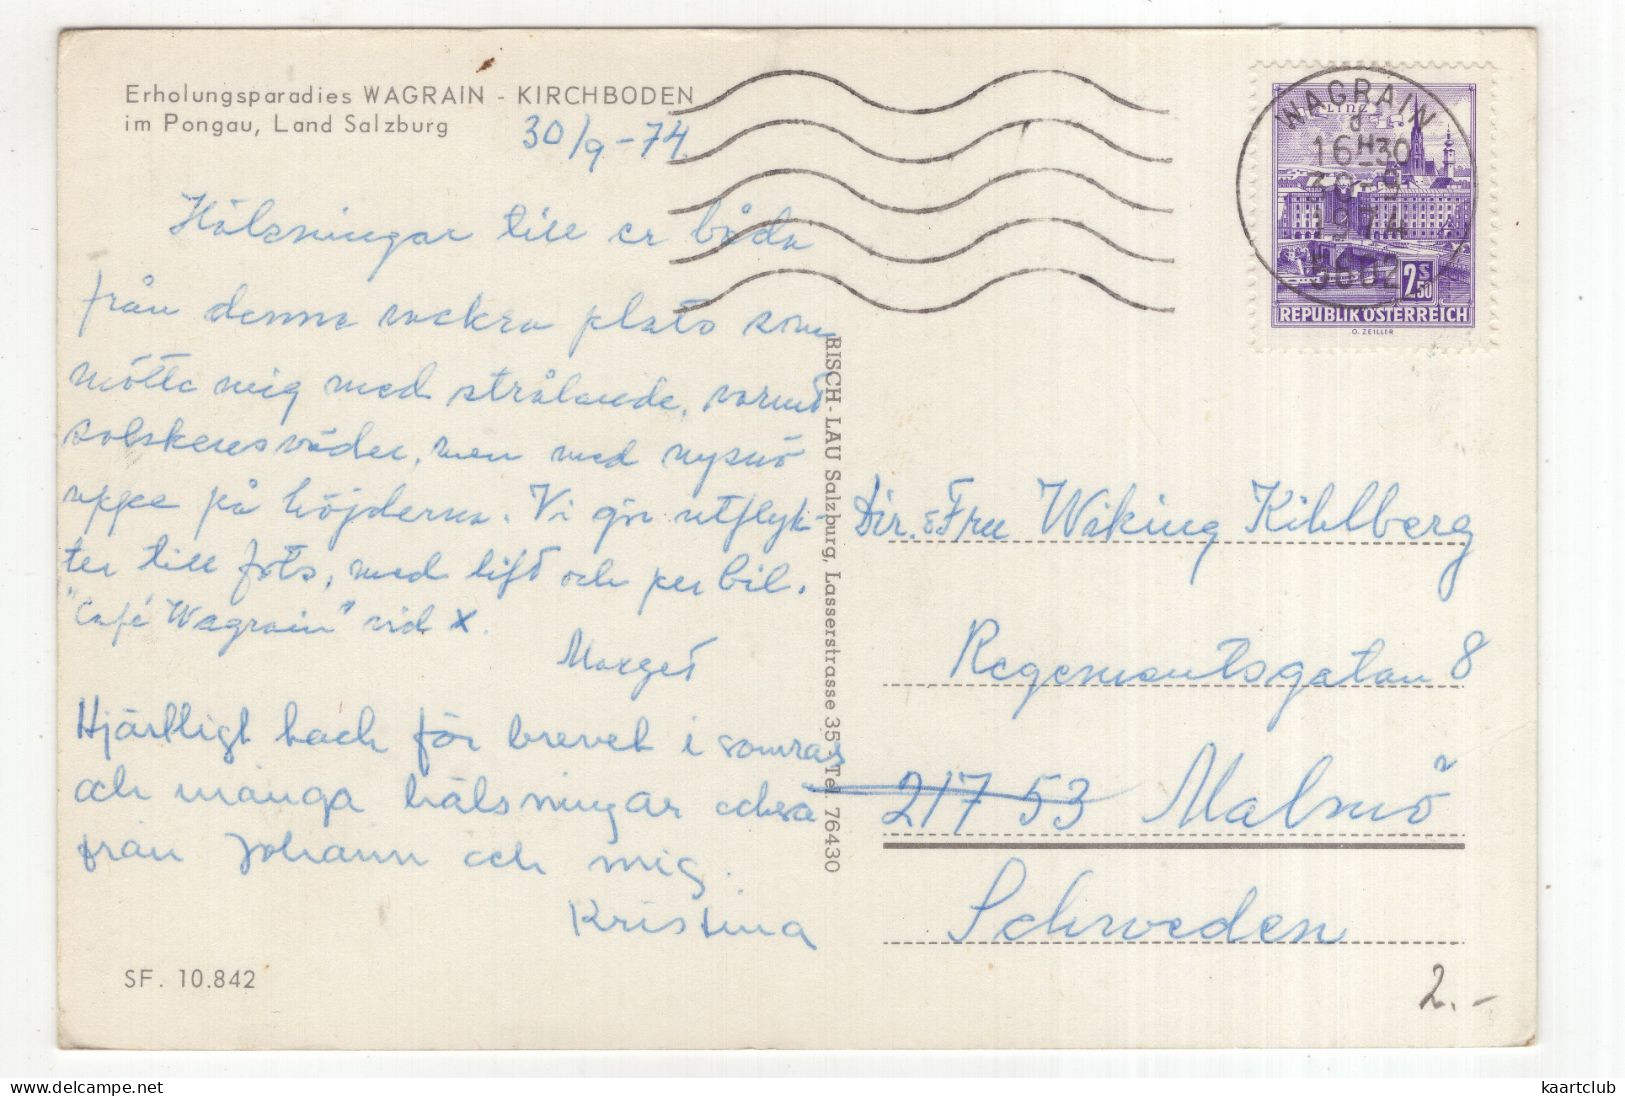 Erholungsparadies WAGRAIN - KIRCHBODEN
im Pongau, Land Salzburg
30/9-74
Hälsningar till er båda
från denna vackra plats som
mötte mig med strålande, varmt
solskensväder, men med nysnö
uppe på höjderna. Vi gör utflyk-
ter till fots, med lift och per bil.
"Café Wagrain" vid X.
Marget
Hjärtligt tack för brevet i somras
och många hälsningar också
från Johann och mig.
Kristina
SF. 10.842
RISCH-LAU Salzburg, Lasserstrasse 35 Tel. 76430
WAGRAIN
d
16H30
30-9
1974
5602
LINZ
2S50
REPUBLIK ÖSTERREICH
O. ZEILLER
Dir. & Fru Wiking Kihlberg
Regementsgatan 8
217 53 Malmö
Schweden
2.-
kaartclub
www.delcampe.net